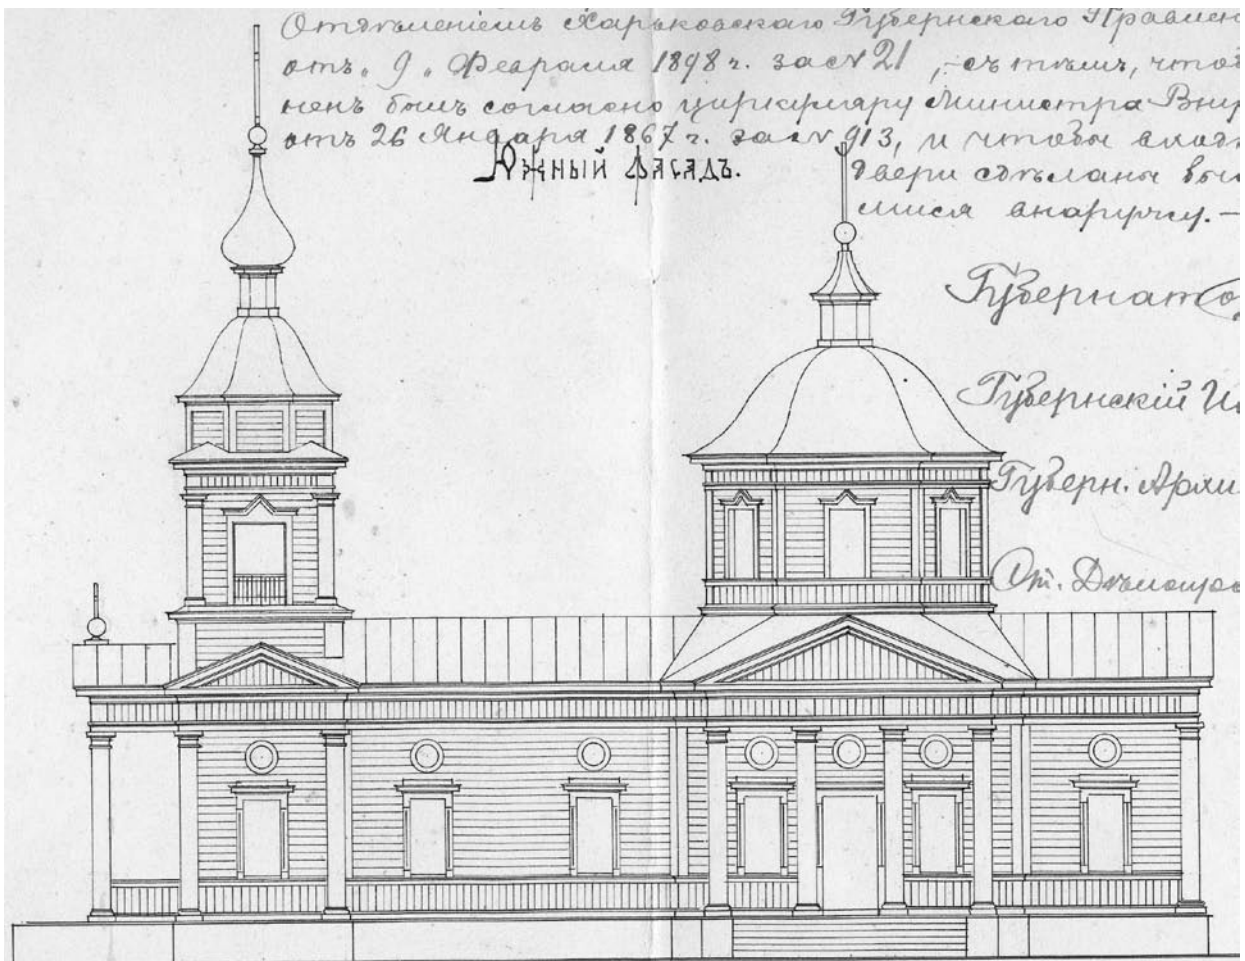 Отдѣленіемъ Харьковскаго Губернскаго Правлен
отъ „9„ Февраля 1898 г. за № 21, – съ тѣмъ, чтоб
ненъ былъ согласно циркуляру Министра Вну
отъ 26 Января 1867 г. за № 913, и чтобы
Южный Фасадъ.
двери сдѣланы
мися внаружу. –
Губернато
Губернскій
Губерн. Архи